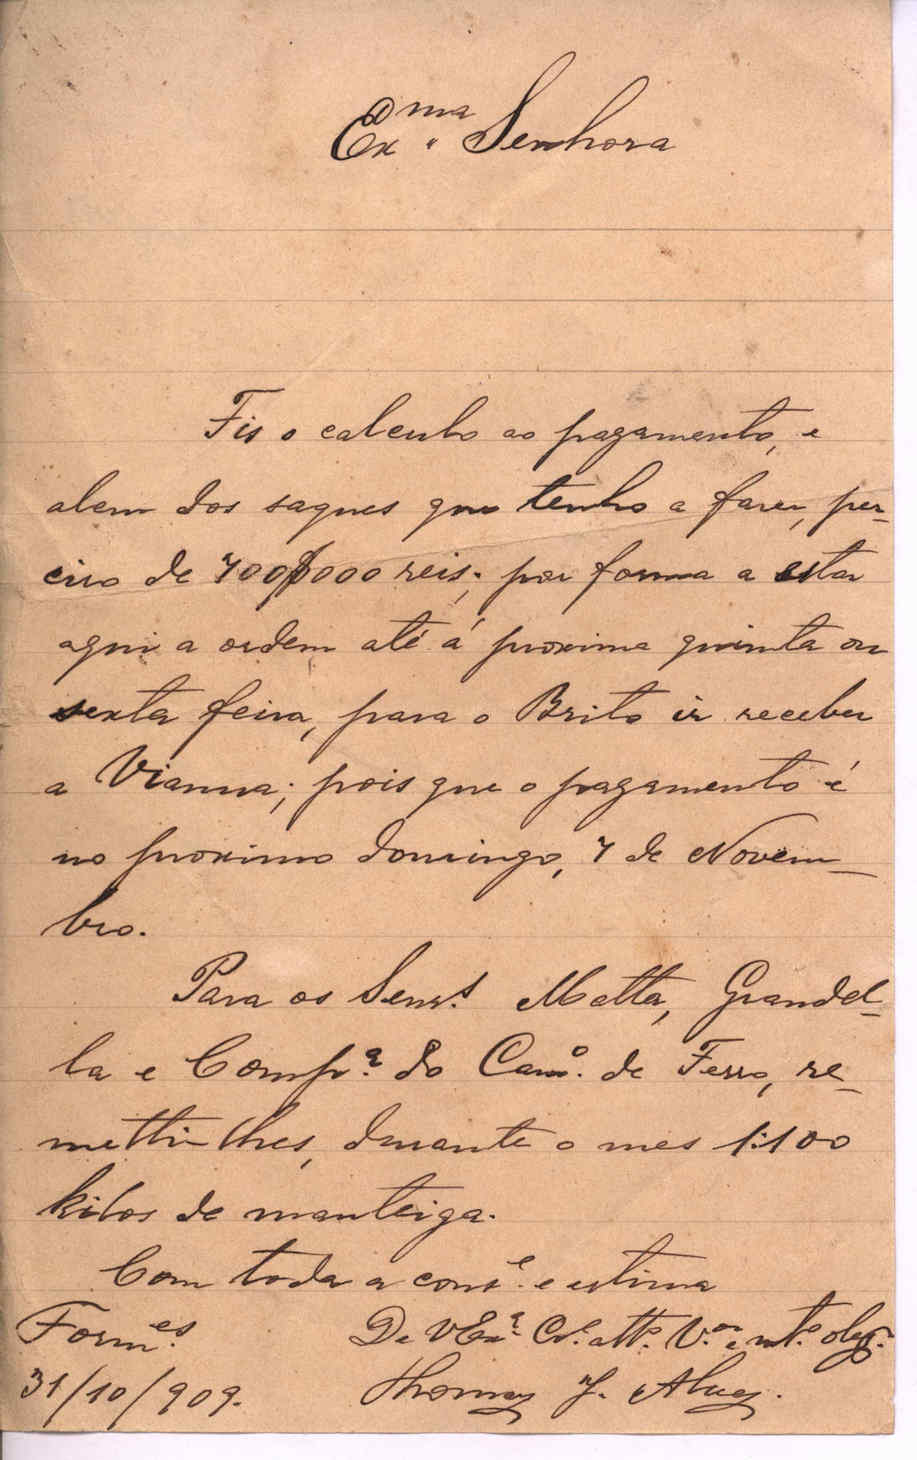 Ex.ma Senhora
Fis o calculo ao pagamento, e
alem dos saques que tenho a faser, per-
ciso de 700$000 reis; por forma a estar
aqui a ordem até á proxima quinta ou
sexta feira, para o Brito ir receber
a Vianna; pois que o pagamento é
no proximo domingo, 7 de Novem-
bro.
Para os Senrs. Matta, Grandel-
la e Comp.a do Camo. de Ferro, re-
metti-lhes, durante o mes 1:100
kilos de manteiga.
Com toda a conse. e estima
Formes. De V Exa. Cr.e att.o V.or e mt.o obg.
31/10/909. Thomaz J. Alves.